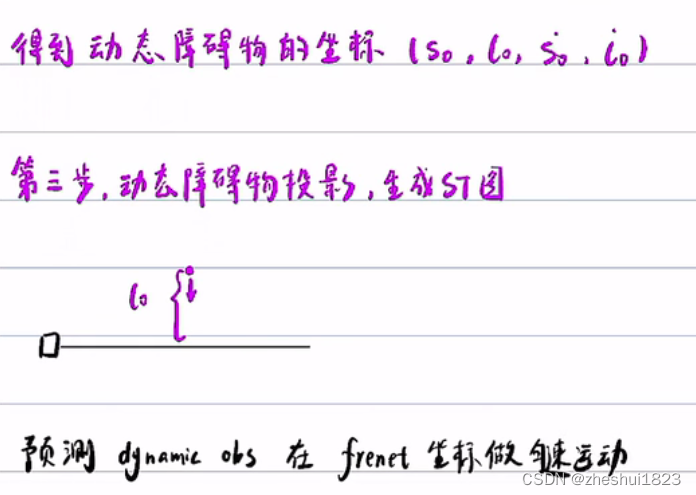 得到动态障碍物的坐标 (s₀, l₀, ṡ₀, l̇₀)
第三步, 动态障碍物投影, 生成ST图
l₀
预测 dynamic obs 在 frenet 坐标做匀速运动
CSDN @zheshui1823